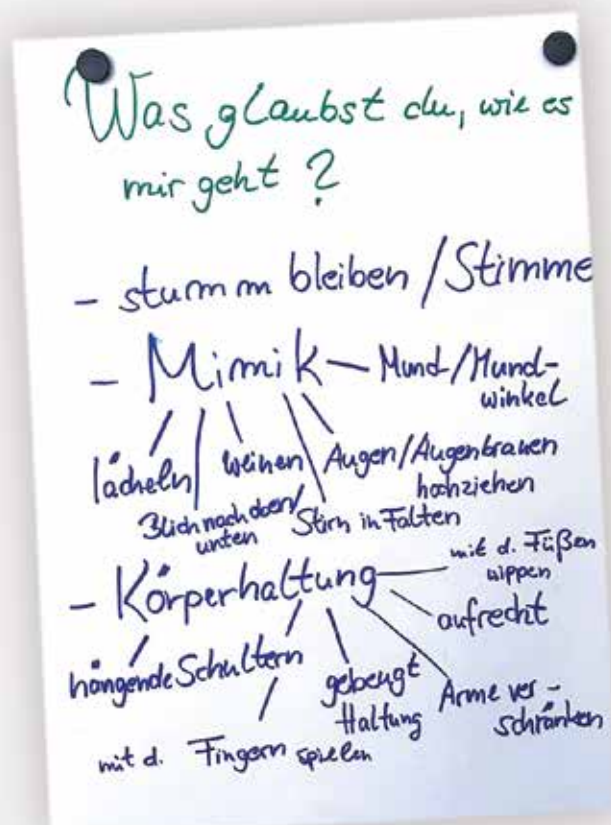 Was glaubst du, wie es
mir geht?
- stumm bleiben / Stimme
- Mimik - Mund-/Mund-
winkel
lächeln
weinen
Augen/Augenbrauen
hochziehen
Blick nach oben/
unten
Stirn in Falten
- Körperhaltung
mit d. Füßen
wippen
aufrecht
hängende Schultern
gebeugt
Haltung
Arme ver-
schränken
mit d. Fingern spielen